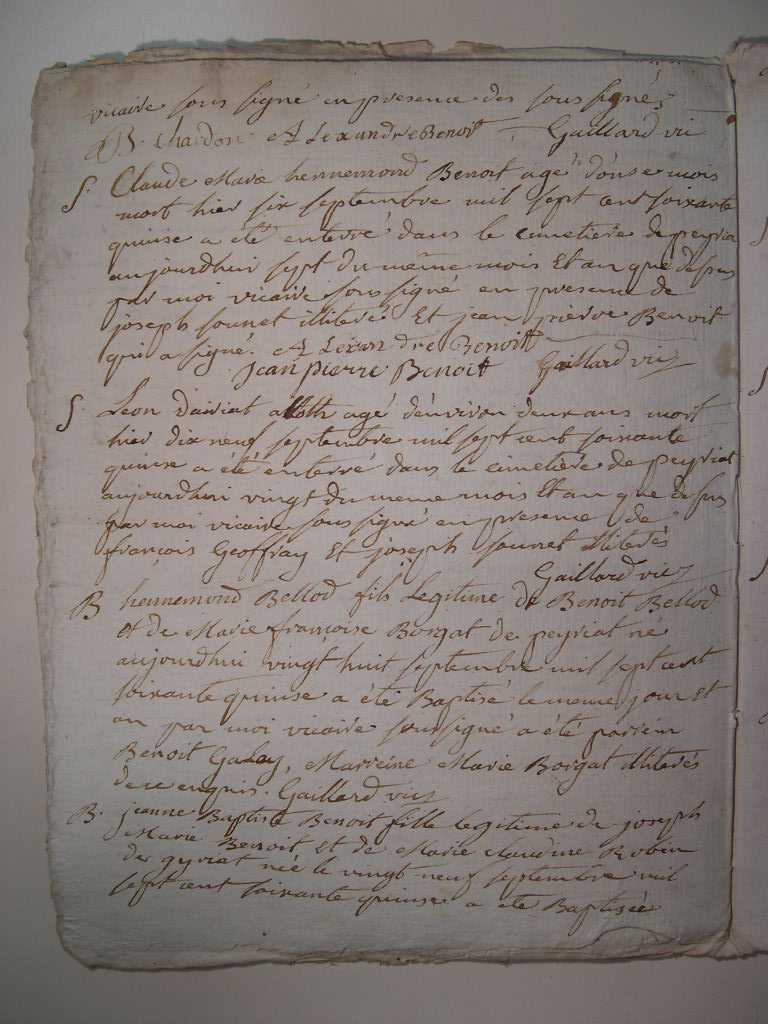 vicaire sous signé en presence des sous signés
B. Chardon ALexandre Benoit Gaillard vic
S. Claude Marie hennemond Benoit agé d'onse mois
mort hier six septembre mil sept cent soixante
quinse a été enterré dans le cimetiere de peyria
aujourdhui sept du même mois Et an que dessus
par moi vicaire sous signé en presence de
joseph sounet illiteré Et jean pierre Benoit
qui a signé. ALexandre Benoit
Jean pierre Benoit Gaillard vic
S. Leon agé d'environ deux ans mort
hier dix neuf septembre mil sept cent soixante
quinse a été enterré dans le cimetière de peyriat
aujourdhui vingt du meme mois Et an que dessus
par moi vicaire sous signé en presence de
françois Geoffray Et joseph sounet illiterés
Gaillard vic
B hennemond Bellod fils Legitime de Benoit Bellod
et de Marie francoise Borgat de peyriat né
aujourdhui vingt huit septembre mil sept cent
soixante quinse a été Baptisé le meme jour Et
an par moi vicaire sous signé a été parrein
Benoit Galay, Marreine Marie Borgat illiterés
de ce enquis. Gaillard vic
B. jeanne Baptiste Benoit fille legitime de joseph
Marie Benoit Et de Marie claudine Robin
de gyriat née le vingt neuf septembre mil
sept cent soixante quinse a été Baptisée